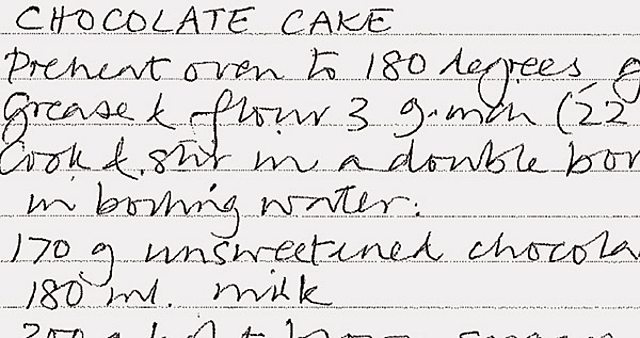 CHOCOLATE CAKE
Preheat oven to 180 degrees g
Grease & flour 3 9-inch (22
Cook & stir in a double boi
in boiling water:
170 g unsweetened chocola
180 ml. milk